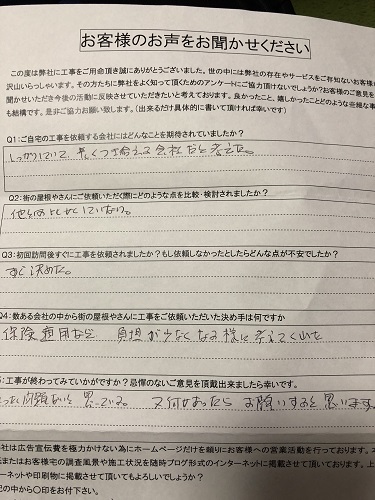 お客様のお声をお聞かせください
この度は弊社に工事をご用命頂き誠にありがとうございました。世の中には弊社の存在やサービスをご存知ないお客様が
沢山いらっしゃいます。その方たちに弊社をよく知って頂くためのアンケートにご協力頂けないでしょうか?お客様のご意見を
聞かせいただき今後の活動に反映させていただきたいと考えております。良かったこと、嬉しかったことなどの些細な事
も結構です。是非ご協力お願い致します。(出来るだけ具体的に書いて頂ければ幸いです)
Q1:ご自宅の工事を依頼する会社にはどんなことを期待されていましたか?
しっかりしていて、長くつき合える会社だと考えた。
Q2:街の屋根やさんにご依頼いただく際にどのような点を比較・検討されましたか?
他社の
していない。
Q3:初回訪問後すぐに工事を依頼されましたか?もし依頼しなかったとしたらどんな点が不安でしたか?
すぐ決めた。
Q4:数ある会社の中から街の屋根やさんに工事をご依頼いただいた決め手は何ですか
保険適用など、負担が少なくなる様に考えてくれた
:工事が終わってみていかがですか?忌憚のないご意見を頂戴出来ましたら幸いです。
問題ないと思っている。又何かあったらお願いすると思います。
社は広告宣伝費を極力かけない為にホームページだけを頼りにお客様への営業活動を行っております。
またはお客様宅の調査風景や施工状況を随時ブログ形式のインターネットに掲載させて頂いております。上
ーネットや印刷物に掲載させて頂いてもよろしいでしょうか?
記の中から○印をお付け下さい。